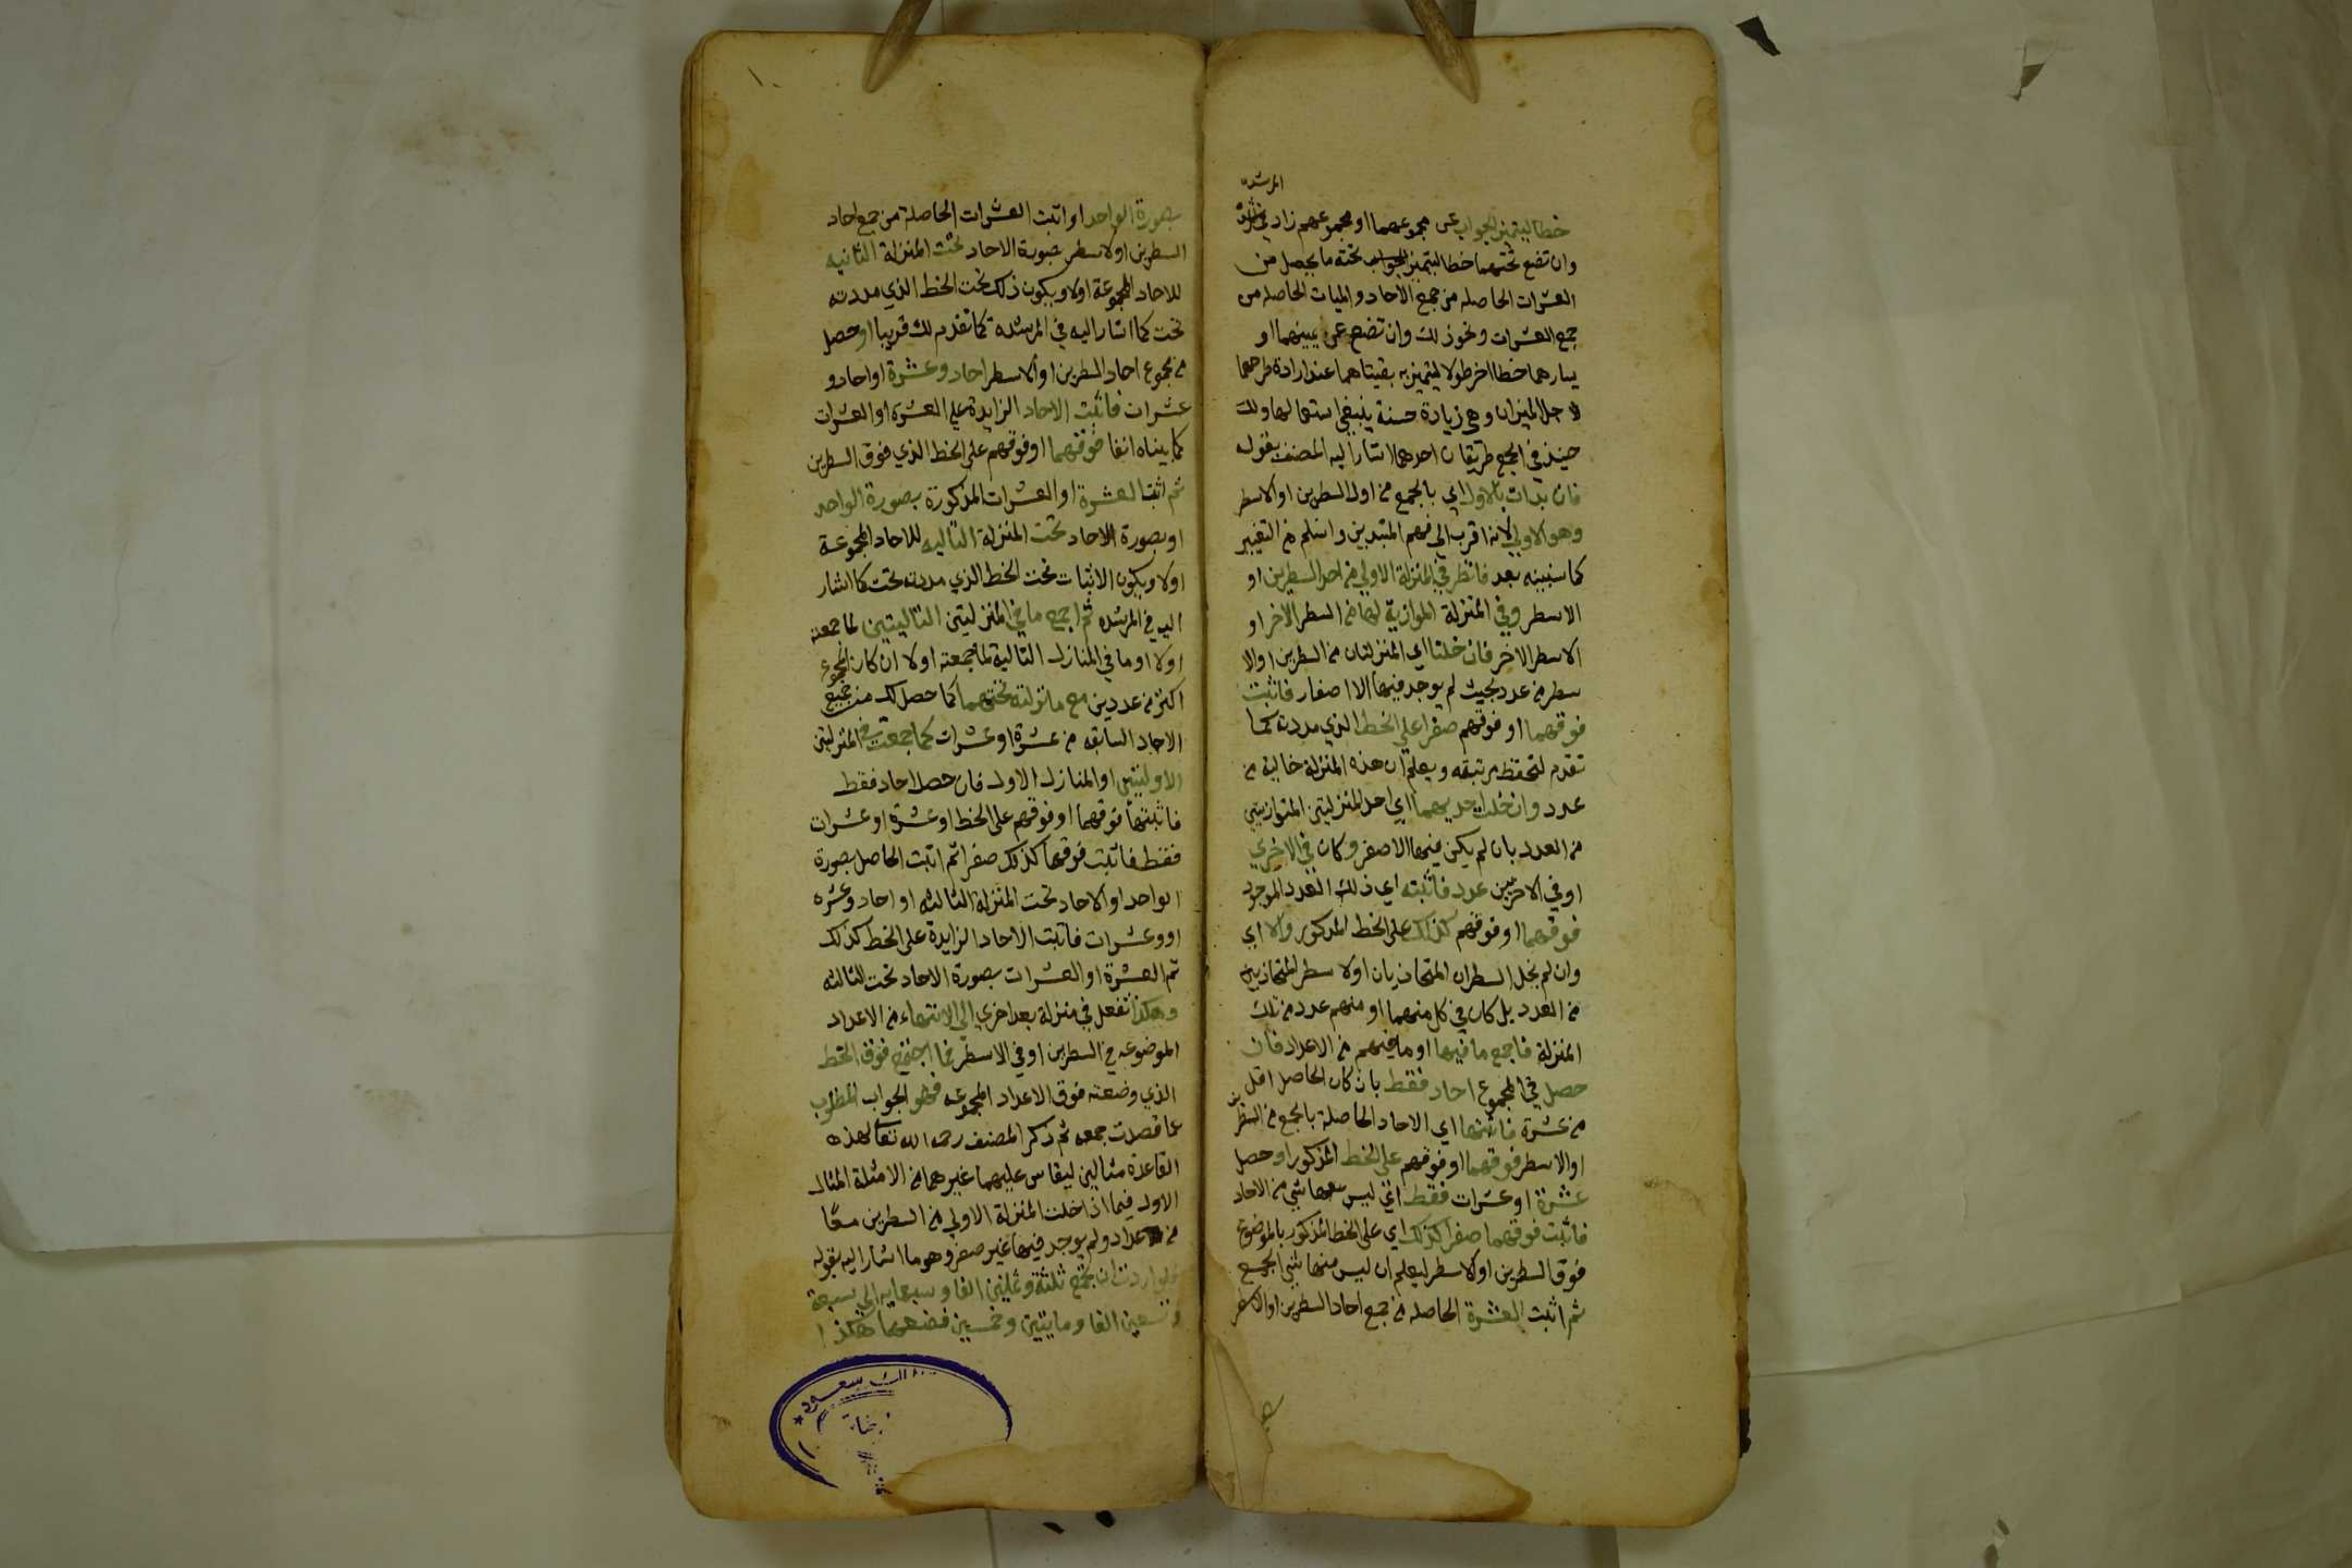 المرشدة
خطا ليتميز الجواب عن مجموعهما او مجموعهم زاد في
وان تضع تحتهما خطا ليتميز الجواب تحته ما يحصل من
العشرات الحاصله من جمع الاحاد والميات الحاصله من
جمع العشرات ونحو ذلك وان تضع عن يمينهما او
يسارهما خطا اخر طولا ليتميز به بقيتاهما عند ارادة طرحهما
لاجل الميزان وهي زيادة حسنة ينبغي استعمالها ولك
حينئذ في الجمع طريقان احدهما اشار اليه المصنف بقوله
فان بدات بالاول اي بالجمع من اول السطرين او الاسطر
وهو الاولي لانه اقرب الى فهم المبتدين واسلم من التغيير
كما سنبينه بعد فانظر في المنزلة الاولي من احد السطرين او
الاسطر وفي المنزلة الموازية لها من السطر الاخر او
الاسطر الاخر فان خلتا اي المنزلتان من السطرين او الا
سطر من عدد بحيث لم يوجد فيها الا اصفار فاثبت
فوقهما او فوقهم صفرا على الخط الذي مددت كما
تقدم لتحفظ مرتبته ويعلم ان هذه المنزلة خالية من
عدد وان خلت احديهما اي احد المنزلتين المتوازيتين
من العدد بان لم يكن فيها الا صفر وكان في الاخري
او في الاخريين عدد فاثبته اي ذلك العدد الموجود
فوقهما او فوقهم كذلك على الخط المذكور والا اي
وان لم يخل السطران المتحاذيان او الاسطر المتحاذين
من العدد بل كان في كل منهما او منهم عدد من تلك
المنزلة فاجمع ما فيها او ما فيهم من الاعداد فان
حصل في المجموع احاد فقط بان كان الحاصل اقل
من عشرة فاثبتها اي الاحاد الحاصلة بالجمع من السطرين
او الاسطر فوقهما او فوقهم على الخط المذكور او حصل
عشرة او عشرات فقط اي ليس معها شي من الاحاد
فاثبت فوقهما صفرا كذلك اي على الخط المذكور بالموضوع
فوق السطرين او الاسطر ليعلم ان ليس منها شي الجمع
ثم اثبت العشرة الحاصله من جمع احاد السطرين او الاسطر
بصورة الواحد او اثبت العشرات الحاصلة من جمع احاد
السطرين او الاسطر بصورة الاحاد تحت المنزلة الثانيه
للاحاد المجموعة اولا ويكون ذلك تحت الخط الذي مددته
تحت كما اشار اليه في المرشده كما تقدم لك قريبا او حصل
من مجموع احاد السطرين او الاسطر احاد وعشرة او احاد و
عشرات فاثبت الاحاد الزايدة على العشرة او العشرات
كما بيناه انفا فوقهما او فوقهم على الخط الذي فوق السطرين
ثم اثبت العشرة او العشرات المذكورة بصورة الواحد
او بصورة الاحاد تحت المنزلة التاليه للاحاد المجموعة
اولا ويكون الاثبات تحت الخط الذي مددت تحت كما اشار
اليه في المرشده ثم اجمع ما في المنزلتين التاليتين لما جمعته
اولا او ما في المنازل التالية لما جمعته اولا ان كان المجموع
اكثر من عددين مع ما نزلته تحتهما كما حصل لك من جميع
الاحاد السابقه من عشرة او عشرات كما جمعت في المنزلتين
الاوليتين او المنازل الاول فان حصل احاد فقط
فاثبتها فوقهما او فوقهم على الخط او عشرة او عشرات
فقط فاثبت فوقها كذلك صفرا ثم اثبت الحاصل بصورة
الواحد او الاحاد تحت المنزلة الثالثه او احاد وعشره
او وعشرات فاثبت الاحاد الزايدة على الخط كذلك
ثم العشرة او العشرات بصورة الاحاد تحت الثالثه
وهكذا تفعل في منزلة بعد اخري الي الانتهاء من الاعداد
الموضوعه من السطرين او في الاسطر فما اجتمع فوق الخط
الذي وضعته فوق الاعداد المجموعه فهو الجواب المطلوب
عما قصدت جمعه ثم ذكر المصنف رحمه الله تعالى لهذه
القاعدة مثالين ليقاس عليهما غيرهما من الامثلة المثال
الاول فيما اذا خلت المنزلة الاولي من السطرين معًا
من اعداد ولم يوجد فيها غير صفر وهو ما اشار اليه بقوله
فلو اردت ان تجمع ثلثة وثمانين الفا وسبعمايه الى سبعة
وتسعين الفا ومايتين وخمسين فضعهما هكذا